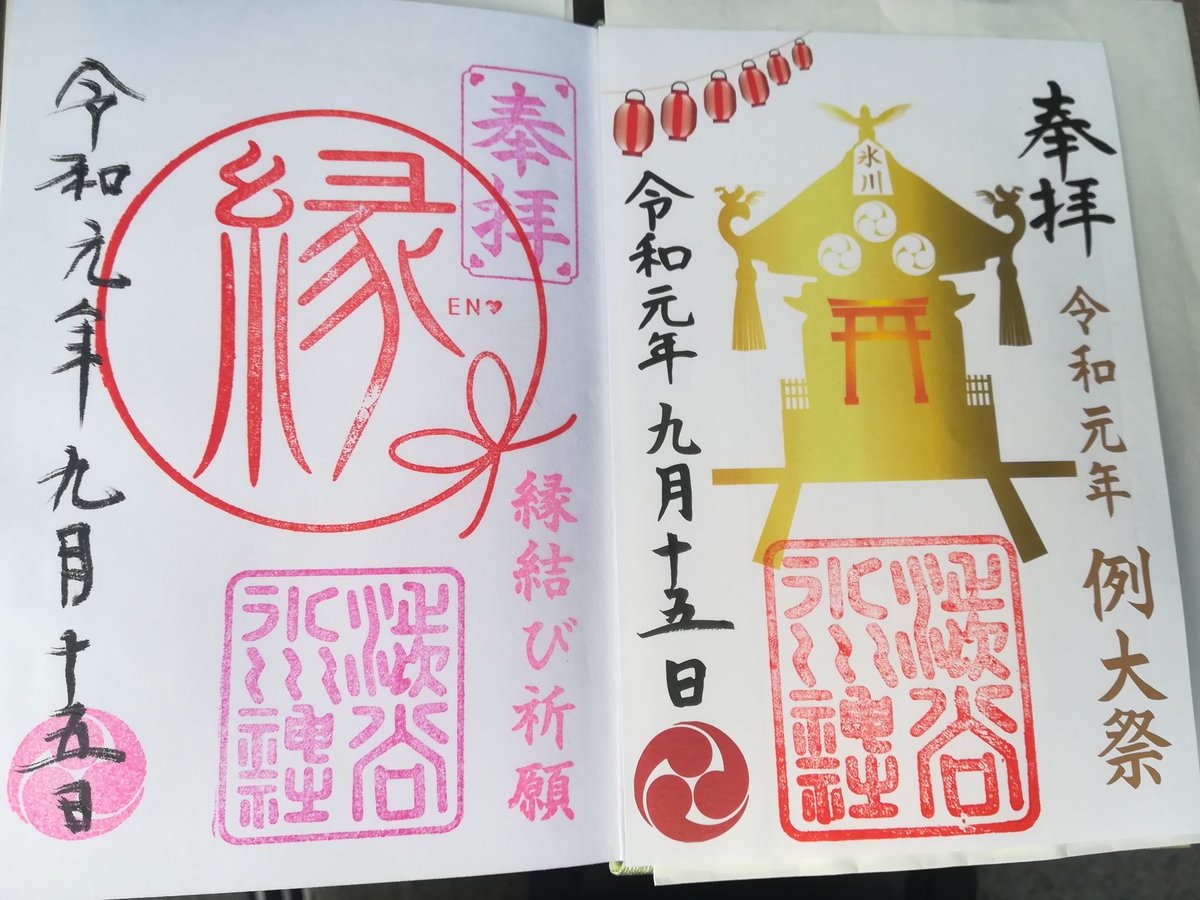 奉拝
令和元年 例大祭
氷川
澁谷
氷川神社
令和元年九月十五日
奉拝
縁結び祈願
縁
EN
澁谷
氷川神社
令和元年九月十五日